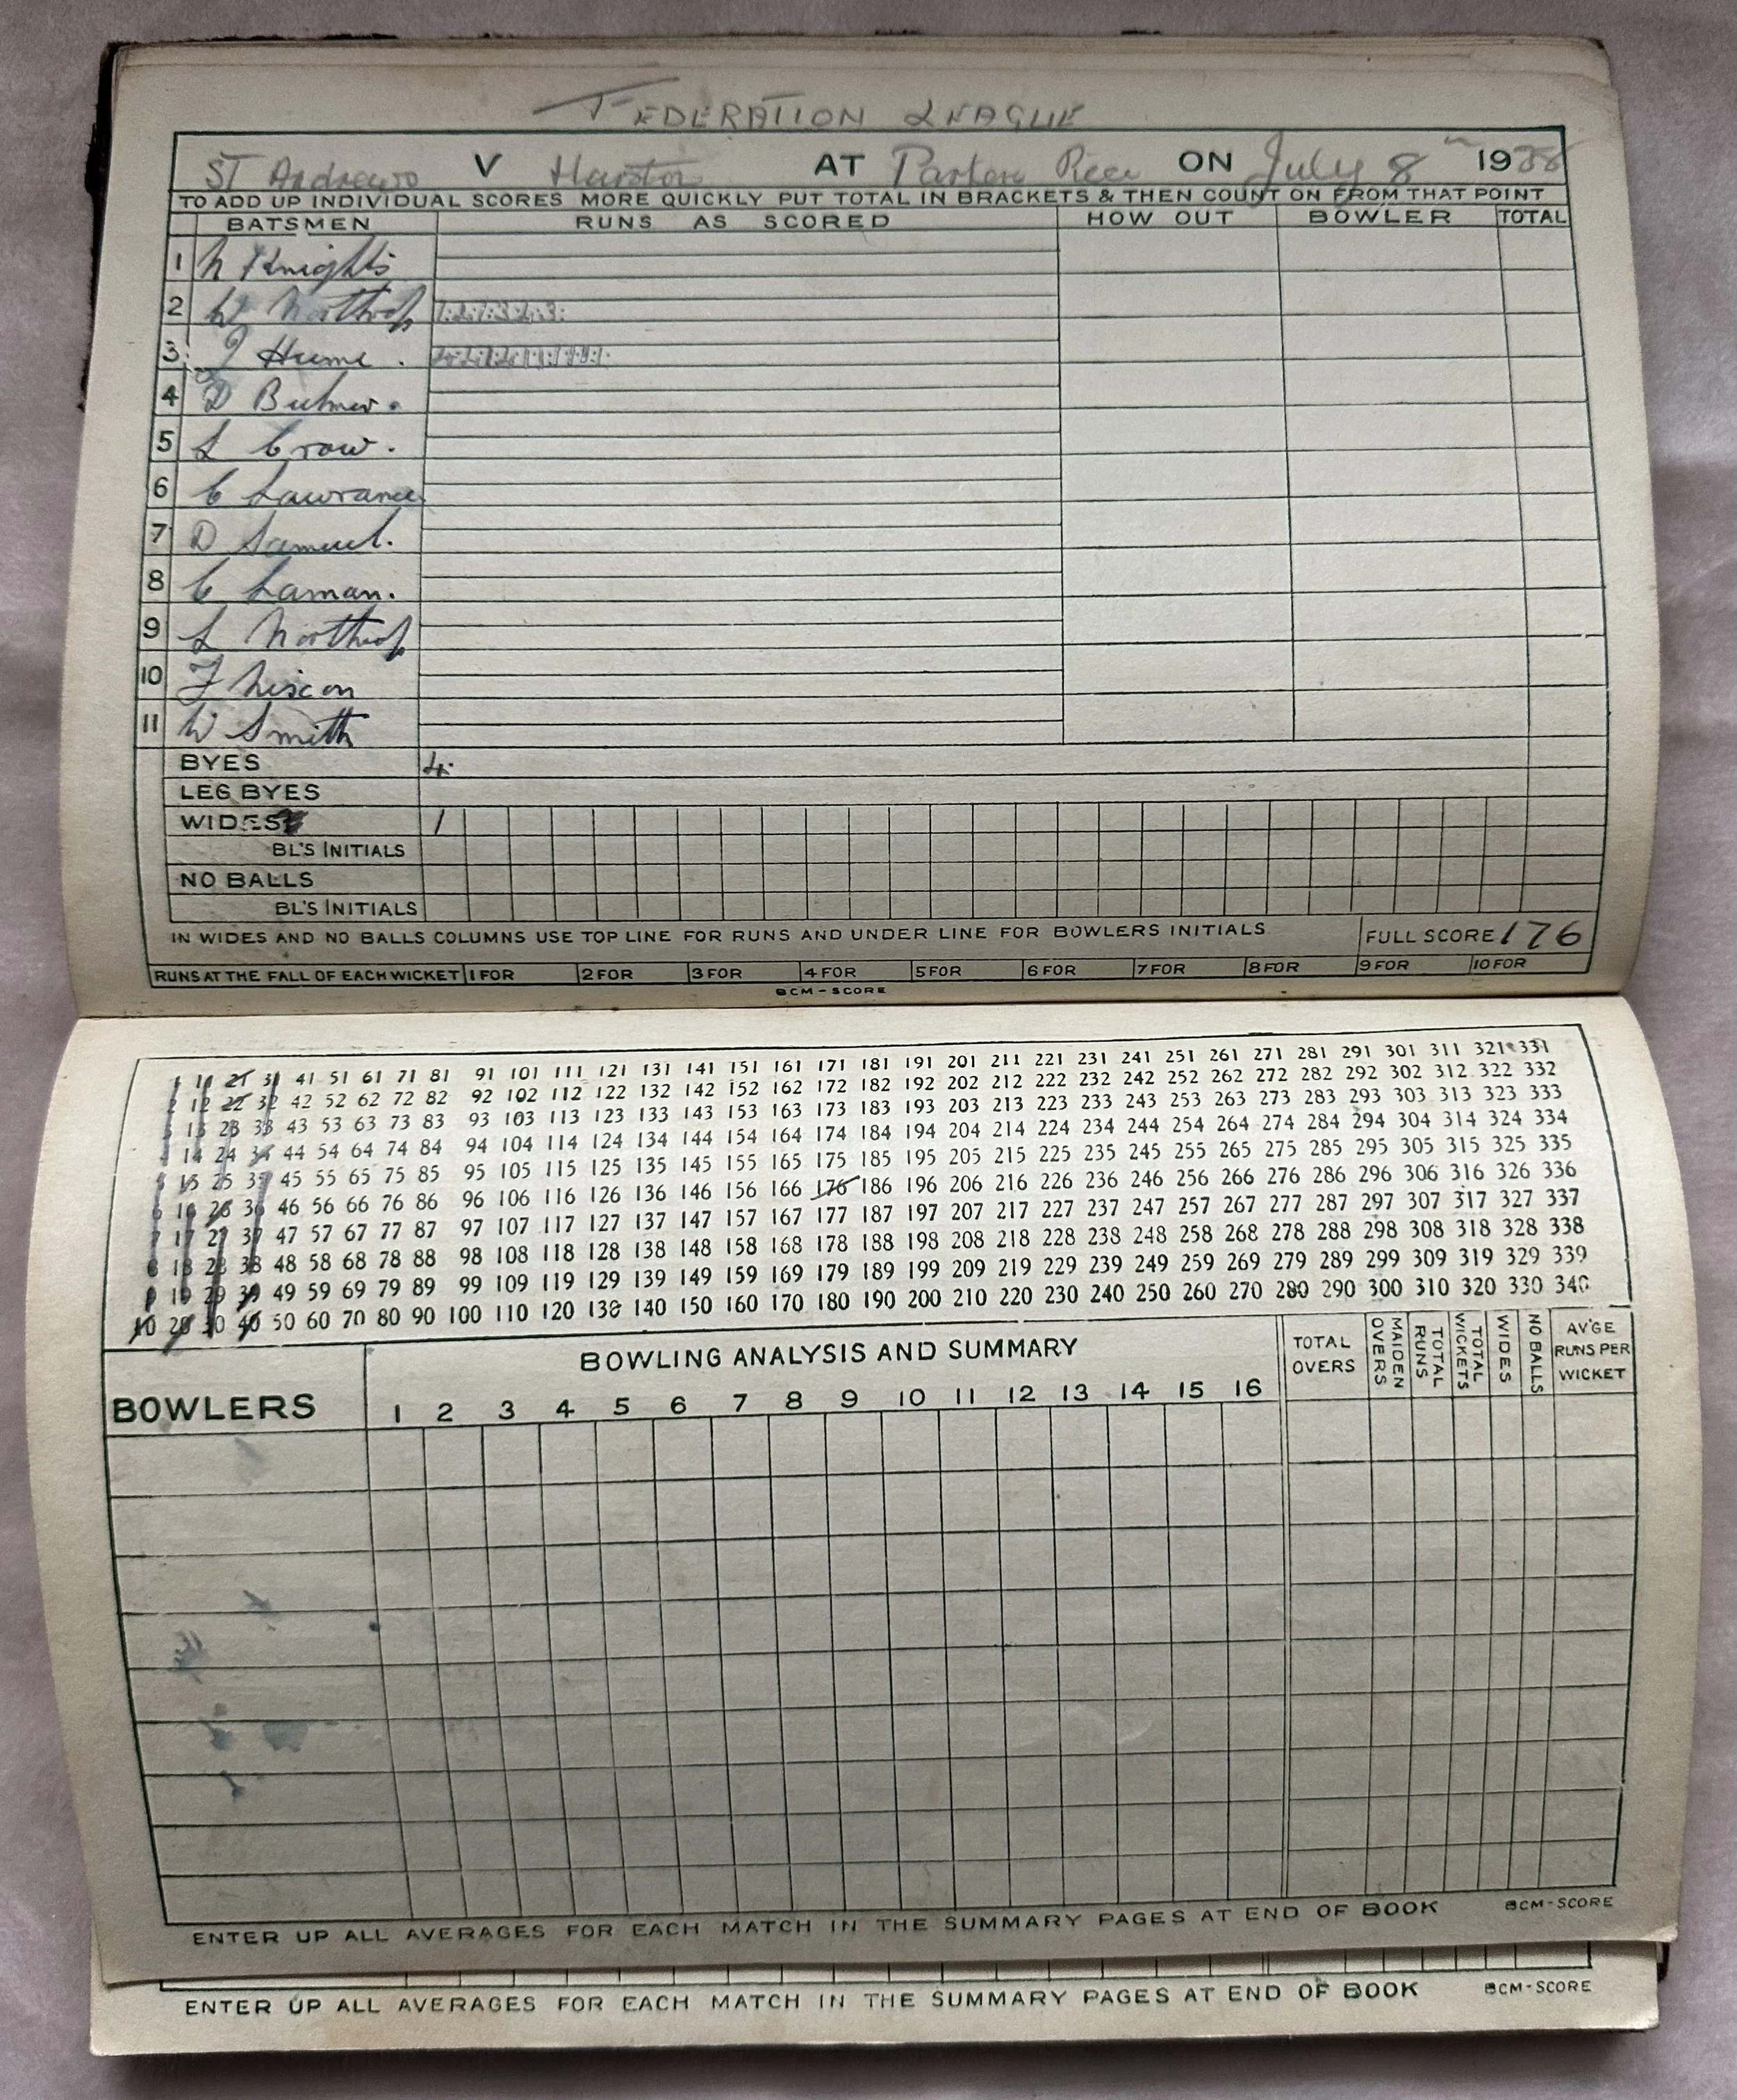 FEDERATION LEAGUE
ST Andrews V Harston AT Parkers Piece ON July 8th 1938
TO ADD UP INDIVIDUAL SCORES MORE QUICKLY PUT TOTAL IN BRACKETS & THEN COUNT ON FROM THAT POINT
BATSMEN RUNS AS SCORED HOW OUT BOWLER TOTAL
1 N Knights
2 W Northrop
3 J Hume .
4 D
5 L Crow .
6 C Lawrance
7 D Samuel.
8 C Laman.
9 L Northrop
10 F
11 W Smith
BYES 4
LEG BYES
WIDES 1
BL'S INITIALS
NO BALLS
BL'S INITIALS
IN WIDES AND NO BALLS COLUMNS USE TOP LINE FOR RUNS AND UNDER LINE FOR BOWLERS INITIALS. FULL SCORE 176
RUNS AT THE FALL OF EACH WICKET 1 FOR 2 FOR 3 FOR 4 FOR 5 FOR 6 FOR 7 FOR 8 FOR 9 FOR 10 FOR
BCM-SCORE
1 11 21 31 41 51 61 71 81 91 101 111 121 131 141 151 161 171 181 191 201 211 221 231 241 251 261 271 281 291 301 311 321 331
2 12 22 32 42 52 62 72 82 92 102 112 122 132 142 152 162 172 182 192 202 212 222 232 242 252 262 272 282 292 302 312 322 332
3 13 23 33 43 53 63 73 83 93 103 113 123 133 143 153 163 173 183 193 203 213 223 233 243 253 263 273 283 293 303 313 323 333
4 14 24 34 44 54 64 74 84 94 104 114 124 134 144 154 164 174 184 194 204 214 224 234 244 254 264 274 284 294 304 314 324 334
5 15 25 35 45 55 65 75 85 95 105 115 125 135 145 155 165 175 185 195 205 215 225 235 245 255 265 275 285 295 305 315 325 335
6 16 26 36 46 56 66 76 86 96 106 116 126 136 146 156 166 176 186 196 206 216 226 236 246 256 266 276 286 296 306 316 326 336
7 17 27 37 47 57 67 77 87 97 107 117 127 137 147 157 167 177 187 197 207 217 227 237 247 257 267 277 287 297 307 317 327 337
8 18 28 38 48 58 68 78 88 98 108 118 128 138 148 158 168 178 188 198 208 218 228 238 248 258 268 278 288 298 308 318 328 338
9 19 29 39 49 59 69 79 89 99 109 119 129 139 149 159 169 179 189 199 209 219 229 239 249 259 269 279 289 299 309 319 329 339
10 20 30 40 50 60 70 80 90 100 110 120 130 140 150 160 170 180 190 200 210 220 230 240 250 260 270 280 290 300 310 320 330 340
BOWLING ANALYSIS AND SUMMARY
BOWLERS 1 2 3 4 5 6 7 8 9 10 11 12 13 14 15 16 TOTAL OVERS MAIDEN OVERS TOTAL RUNS TOTAL WICKETS WIDES NO BALLS AV'GE RUNS PER WICKET
ENTER UP ALL AVERAGES FOR EACH MATCH IN THE SUMMARY PAGES AT END OF BOOK BCM-SCORE
ENTER UP ALL AVERAGES FOR EACH MATCH IN THE SUMMARY PAGES AT END OF BOOK BCM-SCORE